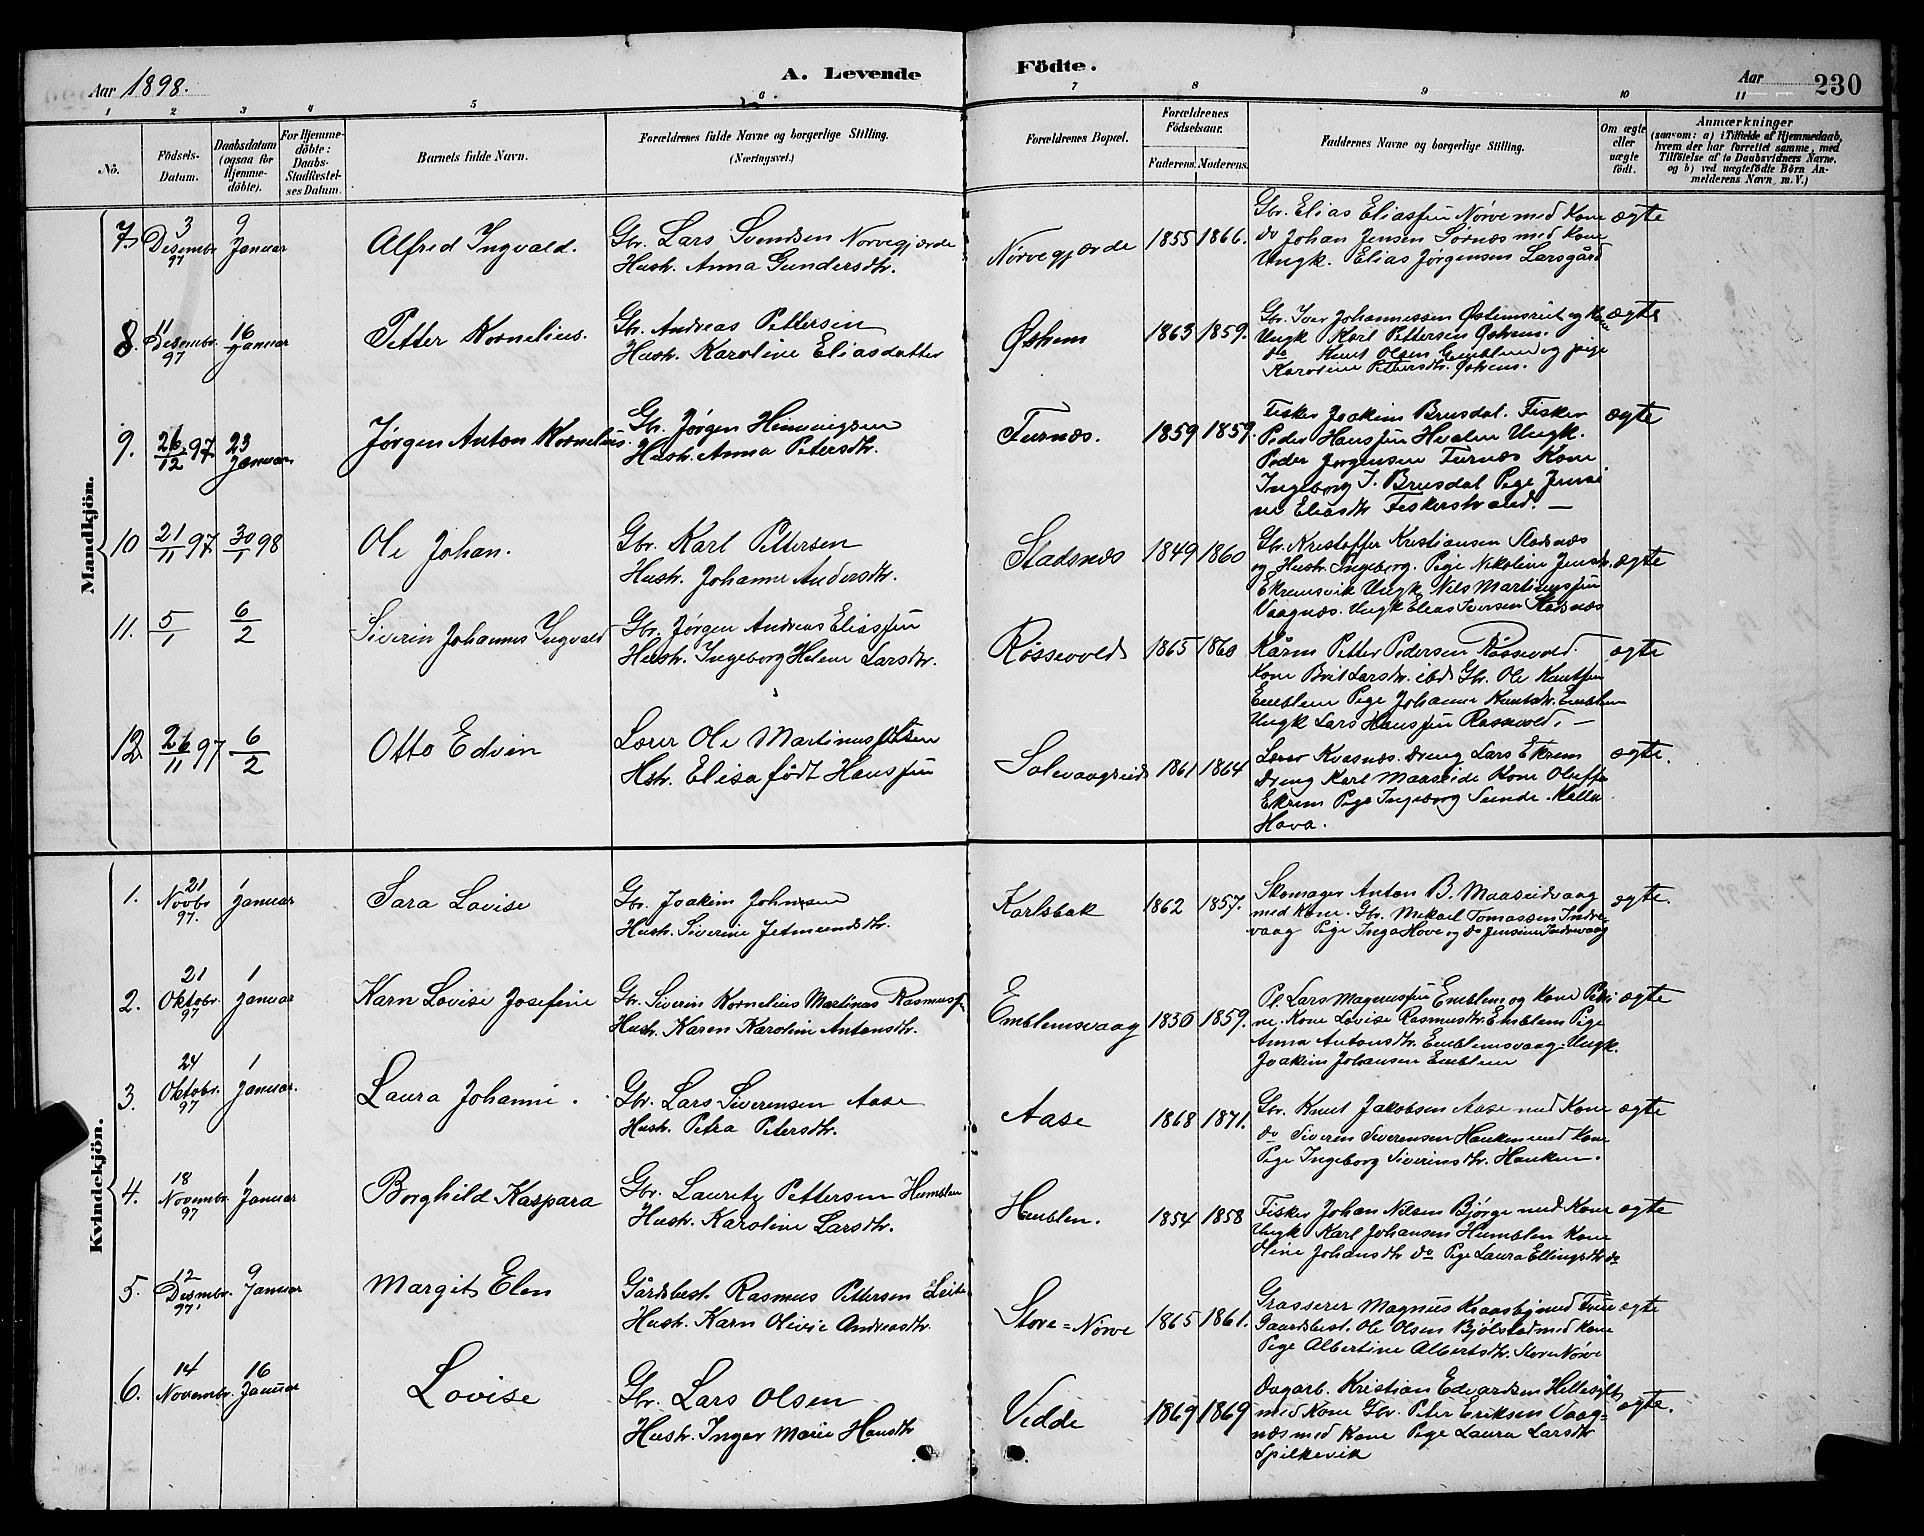 Aar 1898.
A. Levende
Födte.
Aar
230
1 2 3 4 5 6 7 8 9 10 11
No.
Födsels-
Datum.
Daabsdatum
(ogsaa for
Hjemme-
döbte).
For Hjemme-
döbte:
Daabs-
Stadfæstel-
ses Datum.
Barnets fulde Navn.
Forældrenes fulde Navne og borgerlige Stilling.
(Næringsvei.)
Forældrenes Bopæl.
Forældrenes
Födselsaar.
Faderens. Moderens.
Faddernes Navne og borgerlige Stilling.
Om ægte
eller
uægte
födt.
Anmærkninger
(saasom: a) i Tilfælde af Hjemmedaab,
hvem der har forrettet samme, med
Tilföielse af to Daabsvidners Navne,
og b) ved uægtefödte Börn An-
melderens Navn, m. V.)
Mandkjön.
7. 3 Desembr 97 9 Januar
Alfred Ingvald.
Gbr. Lars Svendsen Nørvegjærde
Hustr. Anna Gundersdtr.
Nørvegjærde 1855 1866.
Gbr. Elias Eliassen Nørve med Kone
do Johan Jensen Sørnæs med Kone
Ungk. Elias Jørgensen Larsgård
ægte
8. 11 Desembr. 97 16 Januar
Petter Kornelius.
Gbr. Andreas Pettersen
Hustr. Karoline Eliasdatter
Østrem 1863 1859.
Gbr. Iver Johannessen og Kone
Ungk Karl Pettersen
do Knut Olsen Emblem og pige
Karoline Pettersdtr.
ægte
9. 26/12 97 23 Januar
Jørgen Anton Kornelius.
Gbr. Jørgen
Hustr. Anna Petersdtr.
Furnæs. 1859 1859.
Fisker Joakim Brusdal. Fisker
Peder Hanssen Ungk.
Peder Jørgensen Furnæs Kone
Ingeborg J. Brusdal Pige Jensi
ne Eliasdtr Fiskerstrand. —
ægte
10 21/11 97 30/1 98
Ole Johan.
Gbr. Karl Pettersen
Hustr. Johanne Andersdtr.
Stadsnæs 1849 1860
Gbr. Kristoffer Kristiansen Stadsnæs
og Hustr. Ingeborg. Pige Nikoline Jensdtr.
Ekremsvik Ungk Nils Martinussen
Vaagnæs. Ungk Elias Iversen Stadsnæs
ægte
11. 5/1 6/2
Siverin Johannes Ingvald
Gbr. Jørgen Andreas Eliassen
Hustr. Ingeborg Helene Larsdtr.
Røssevold 1865 1860
Kårm Petter Pedersen Røssevold.
Kone Brit Larsdtr. ibd. Gbr. Ole Knutsen
Emblem Pige Johanne Knutsdtr. Emblem
Ungk Lars Hanssen Røssevold. —
ægte
12 26/11 97 6/2
Otto Edvin
Lærer Ole Martinus Olsen
Hstr. Elisa født Hanssen
Solevaagseid 1861 1864
Lærer Kvasnæs. Dreng Lars Ekrem
Dreng Karl Maaseide Kone Oluffa
Ekrem Pige Ingeborg Sunde.
ægte.
Kvindekjön.
1. 21 Novbr 97. 1 Januar
Sara Lovise
Gbr. Joakim Johnsen
Hustr. Siverine Jetmundsdtr.
Karlsbak 1862 1857.
Skomager Anton B. Maaseidvaag
med Kone. Gbr. Mikael Tomassen Indre-
vaag Pige Inga Hove og do Jensine Indrevaag
ægte.
2. 21 Oktobr. 97 1 Januar
Karn Lovise Josefine
Gbr. Siverin Kornelius Martinus Rasmuss.
Hustr. Karen Karoline Antonsdtr.
Emblemsvaag 1856 1859.
Pl. Lars Magnussen Emblem og Kone Petri
ne. Kone Lovise Rasmusdtr. Emblem Pige
Anna Antonsdtr. Emblemsvaag. Ungk.
Joakim Johansen Emblem
ægte
3. 24 Oktobr. 97 1 Januar.
Laura Johanne.
Gbr. Lars Siverensen Aase
Hustr. Petra Petersdtr.
Aase 1868 1871.
Gbr. Knut Jakobsen Aase med Kone
do Siveren Siverensen Hauken med Kone
Pige Ingeborg Siverinsdtr. Hauken.
ægte
4. 18 Novembr. 97 1 Januar
Borghild Kaspara
Gbr. Lauritz Pettersen Humblen
Hustr. Karoline Larsdtr.
Humblen. 1854 1858
Fisker Johan Nilsen Bjørge med Kone
Ungk Karl Johansen Humblen Kone
Oline Johansdtr do Pige Laura Ellingsdtr do
ægte
5. 12 Desmbr. 97. 9 Januar
Margit Elen
Gårdsbest. Rasmus Pettersen Leite
Hustr. Karn Olivie Andreasdtr.
Store-Nørve 1865 1861.
Grosserer Magnus Kraasby med Frue
Gaardsbest. Ole Olsen Bjølstad med Kone
Pige Albertine Albertsdtr. Store Nørve
ægte
6. 14 Novembr. 16 Januar
Lovise
Gbr. Lars Olsen
Hustr. Inger Marie Hansdtr
Vedde 1869 1869
Dagarb. Kristian Edvardsen Hellesylt
med Kone Gbr. Peter Eriksen Vaag-
næs med Kone Pige Laura Larsdtr
Spilkevik
ægte.